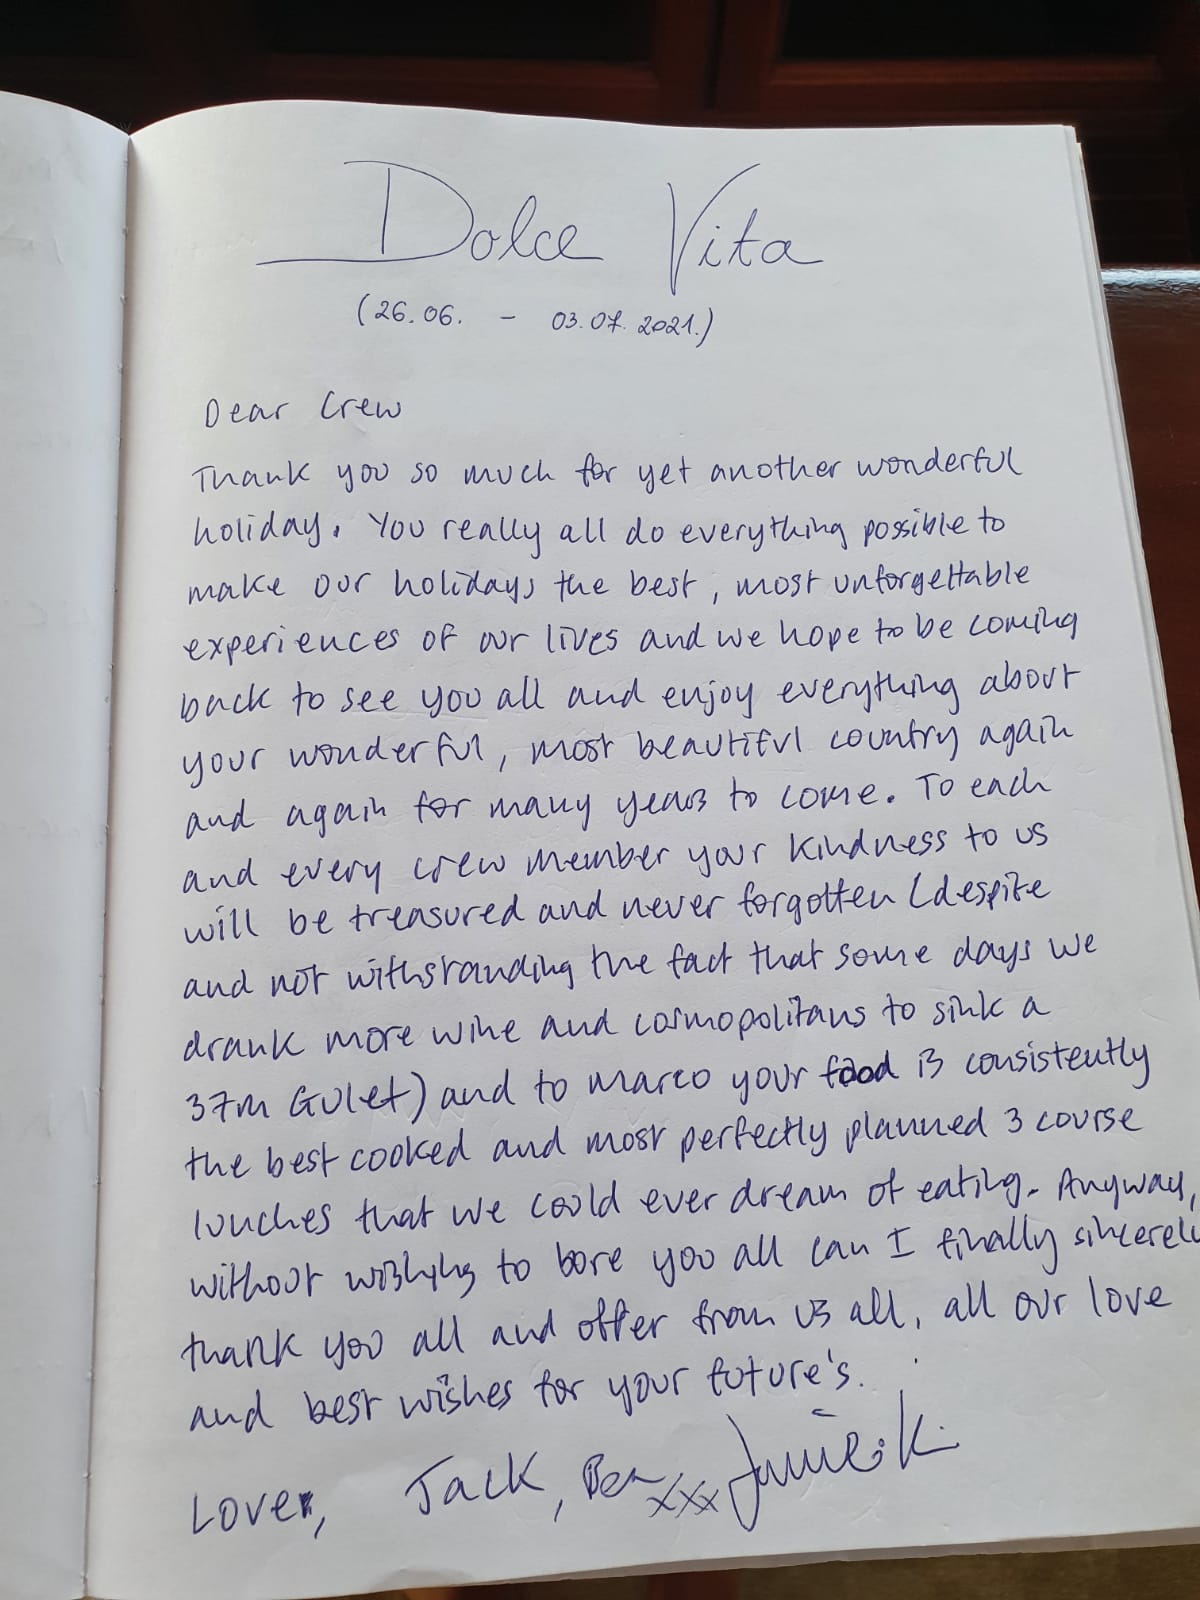 Dolce Vita
(26.06. - 03.07.2021.)
Dear Crew
Thank you so much for yet another wonderful
holiday. You really all do everything possible to
make our holidays the best, most unforgettable
experiences of our lives and we hope to be coming
back to see you all and enjoy everything about
your wonderful, most beautiful country again
and again for many years to come. To each
and every crew member your kindness to us
will be treasured and never forgotten (despite
and not withstanding the fact that some days we
drank more wine and cosmopolitans to sink a
37m Gulet) and to Marco your food is consistently
the best cooked and most perfectly planned 3 course
lunches that we could ever dream of eating. Anyway,
without wishing to bore you all can I finally sincerely
thank you all and offer from us all, all our love
and best wishes for your future's.
Love, Jack, Ben xxx